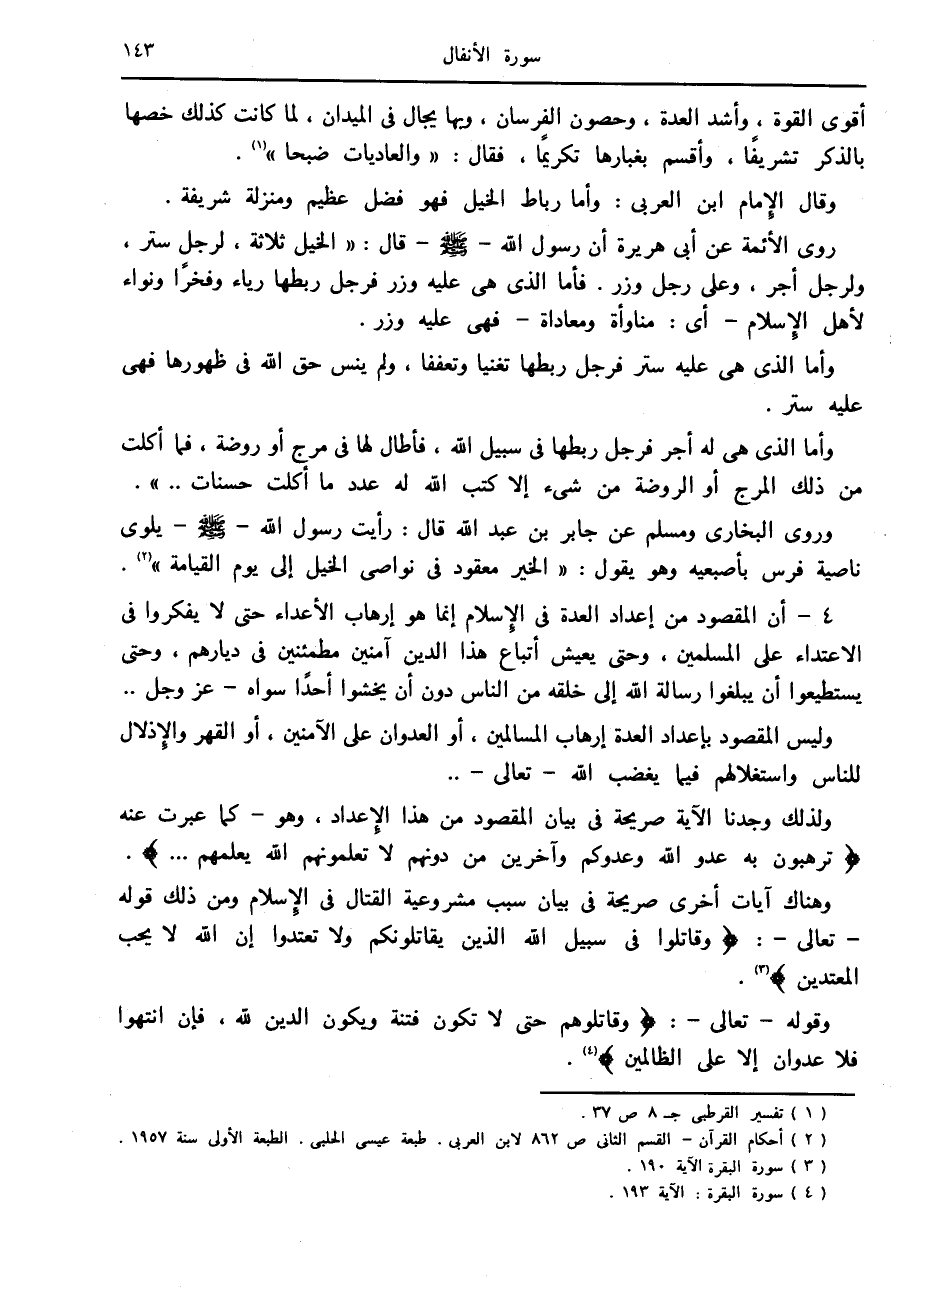 سورة الأنفال ١٤٣
أقوى القوة ، وأشد العدة ، وحصون الفرسان ، وبها يجال فى الميدان ، لما كانت كذلك خصها
بالذكر تشريفًا ، وأقسم بغبارها تكريمًا ، فقال : « والعاديات ضبحا »(١) .
وقال الإمام ابن العربى : وأما رباط الخيل فهو فضل عظيم ومنزلة شريفة .
روى الأئمة عن أبى هريرة أن رسول الله – ﷺ – قال : « الخيل ثلاثة ، لرجل ستر ،
ولرجل أجر ، وعلى رجل وزر . فأما الذى هى عليه وزر فرجل ربطها رياء وفخرًا ونواء
لأهل الإسلام – أى : مناوأة ومعاداة – فهى عليه وزر .
وأما الذى هى عليه ستر فرجل ربطها تغنيا وتعففا ، ولم ينس حق الله فى ظهورها فهى
عليه ستر .
وأما الذى هى له أجر فرجل ربطها فى سبيل الله ، فأطال لها فى مرج أو روضة ، فما أكلت
من ذلك المرج أو الروضة من شىء إلا كتب الله له عدد ما أكلت حسنات .. » .
وروى البخارى ومسلم عن جابر بن عبد الله قال : رأيت رسول الله – ﷺ – يلوى
ناصية فرس بأصبعيه وهو يقول : « الخير معقود فى نواصى الخيل إلى يوم القيامة »(٢) .
٤ – أن المقصود من إعداد العدة فى الإسلام إنما هو إرهاب الأعداء حتى لا يفكروا فى
الاعتداء على المسلمين ، وحتى يعيش أتباع هذا الدين آمنين مطمئنين فى ديارهم ، وحتى
يستطيعوا أن يبلغوا رسالة الله إلى خلقه من الناس دون أن يخشوا أحدًا سواه – عز وجل ..
وليس المقصود بإعداد العدة إرهاب المسالمين ، أو العدوان على الآمنين ، أو القهر والإذلال
للناس واستغلالهم فيما يغضب الله – تعالى – ..
ولذلك وجدنا الآية صريحة فى بيان المقصود من هذا الإعداد ، وهو – كما عبرت عنه
﴿ ترهبون به عدو الله وعدوكم وآخرين من دونهم لا تعلمونهم الله يعلمهم ... ﴾ .
وهناك آيات أخرى صريحة فى بيان سبب مشروعية القتال فى الإسلام ومن ذلك قوله
– تعالى – : ﴿ وقاتلوا فى سبيل الله الذين يقاتلونكم ولا تعتدوا إن الله لا يحب
المعتدين ﴾(٣) .
وقوله – تعالى – : ﴿ وقاتلوهم حتى لا تكون فتنة ويكون الدين لله ، فإن انتهوا
فلا عدوان إلا على الظالمين ﴾(٤) .
( ١ ) تفسير القرطبى جـ ٨ ص ٣٧ .
( ٢ ) أحكام القرآن – القسم الثانى ص ٨٦٢ لابن العربى . طبعة عيسى الحلبى . الطبعة الأولى سنة ١٩٥٧ .
( ٣ ) سورة البقرة الآية ١٩٠ .
( ٤ ) سورة البقرة : الآية ١٩٣ .